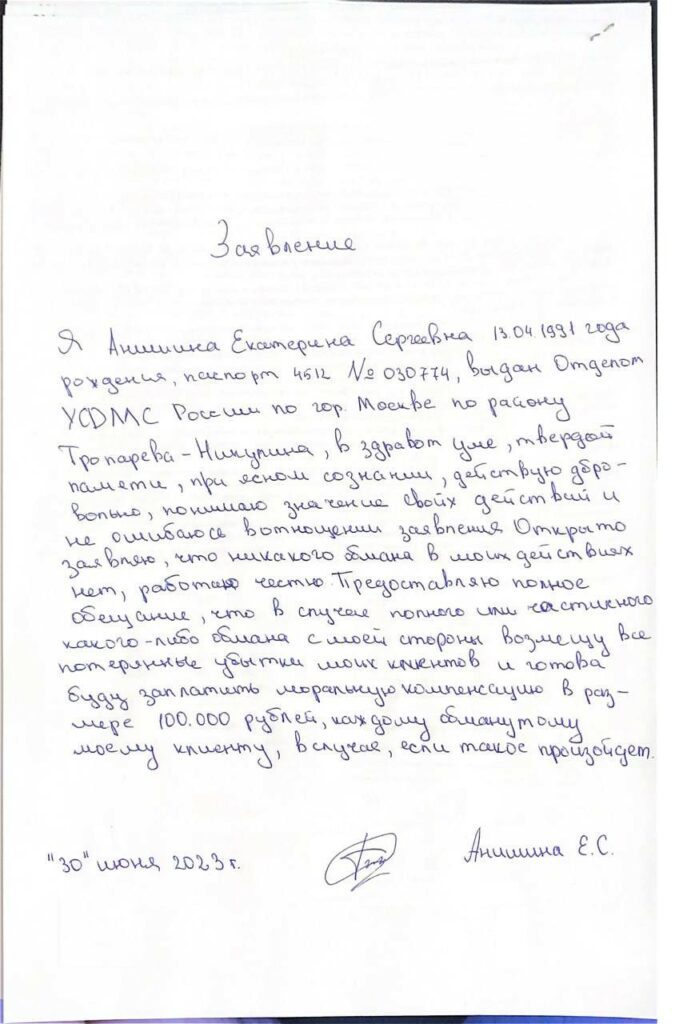 Заявление
Я Анишина Екатерина Сергеевна 13.04.1991 года
рождения, паспорт 4512 № 030774, выдан Отделом
УФМС России по гор. Москве по району
Тропарева-Никулина, в здравом уме, твердой
памяти, при ясном сознании, действую добро-
вольно, понимаю значение свойх действий и
не ошибаюсь вотнощении заявления Открыто
заявляю, что никакого обмана в моих действиях
нет, работаю честно. Предоставляю полное
обещание, что в случае полного или частичного
какого-либо обмана с моей стороны возмещу все
потерянные убытки моих клиентов и готова
буду заплатить моральную компенсацию в раз-
мере 100.000 рублей, каждому обманутому
моему клиенту, в случае, если такое произойдет.
"30" июня 2023 г.
Анишина Е.С.